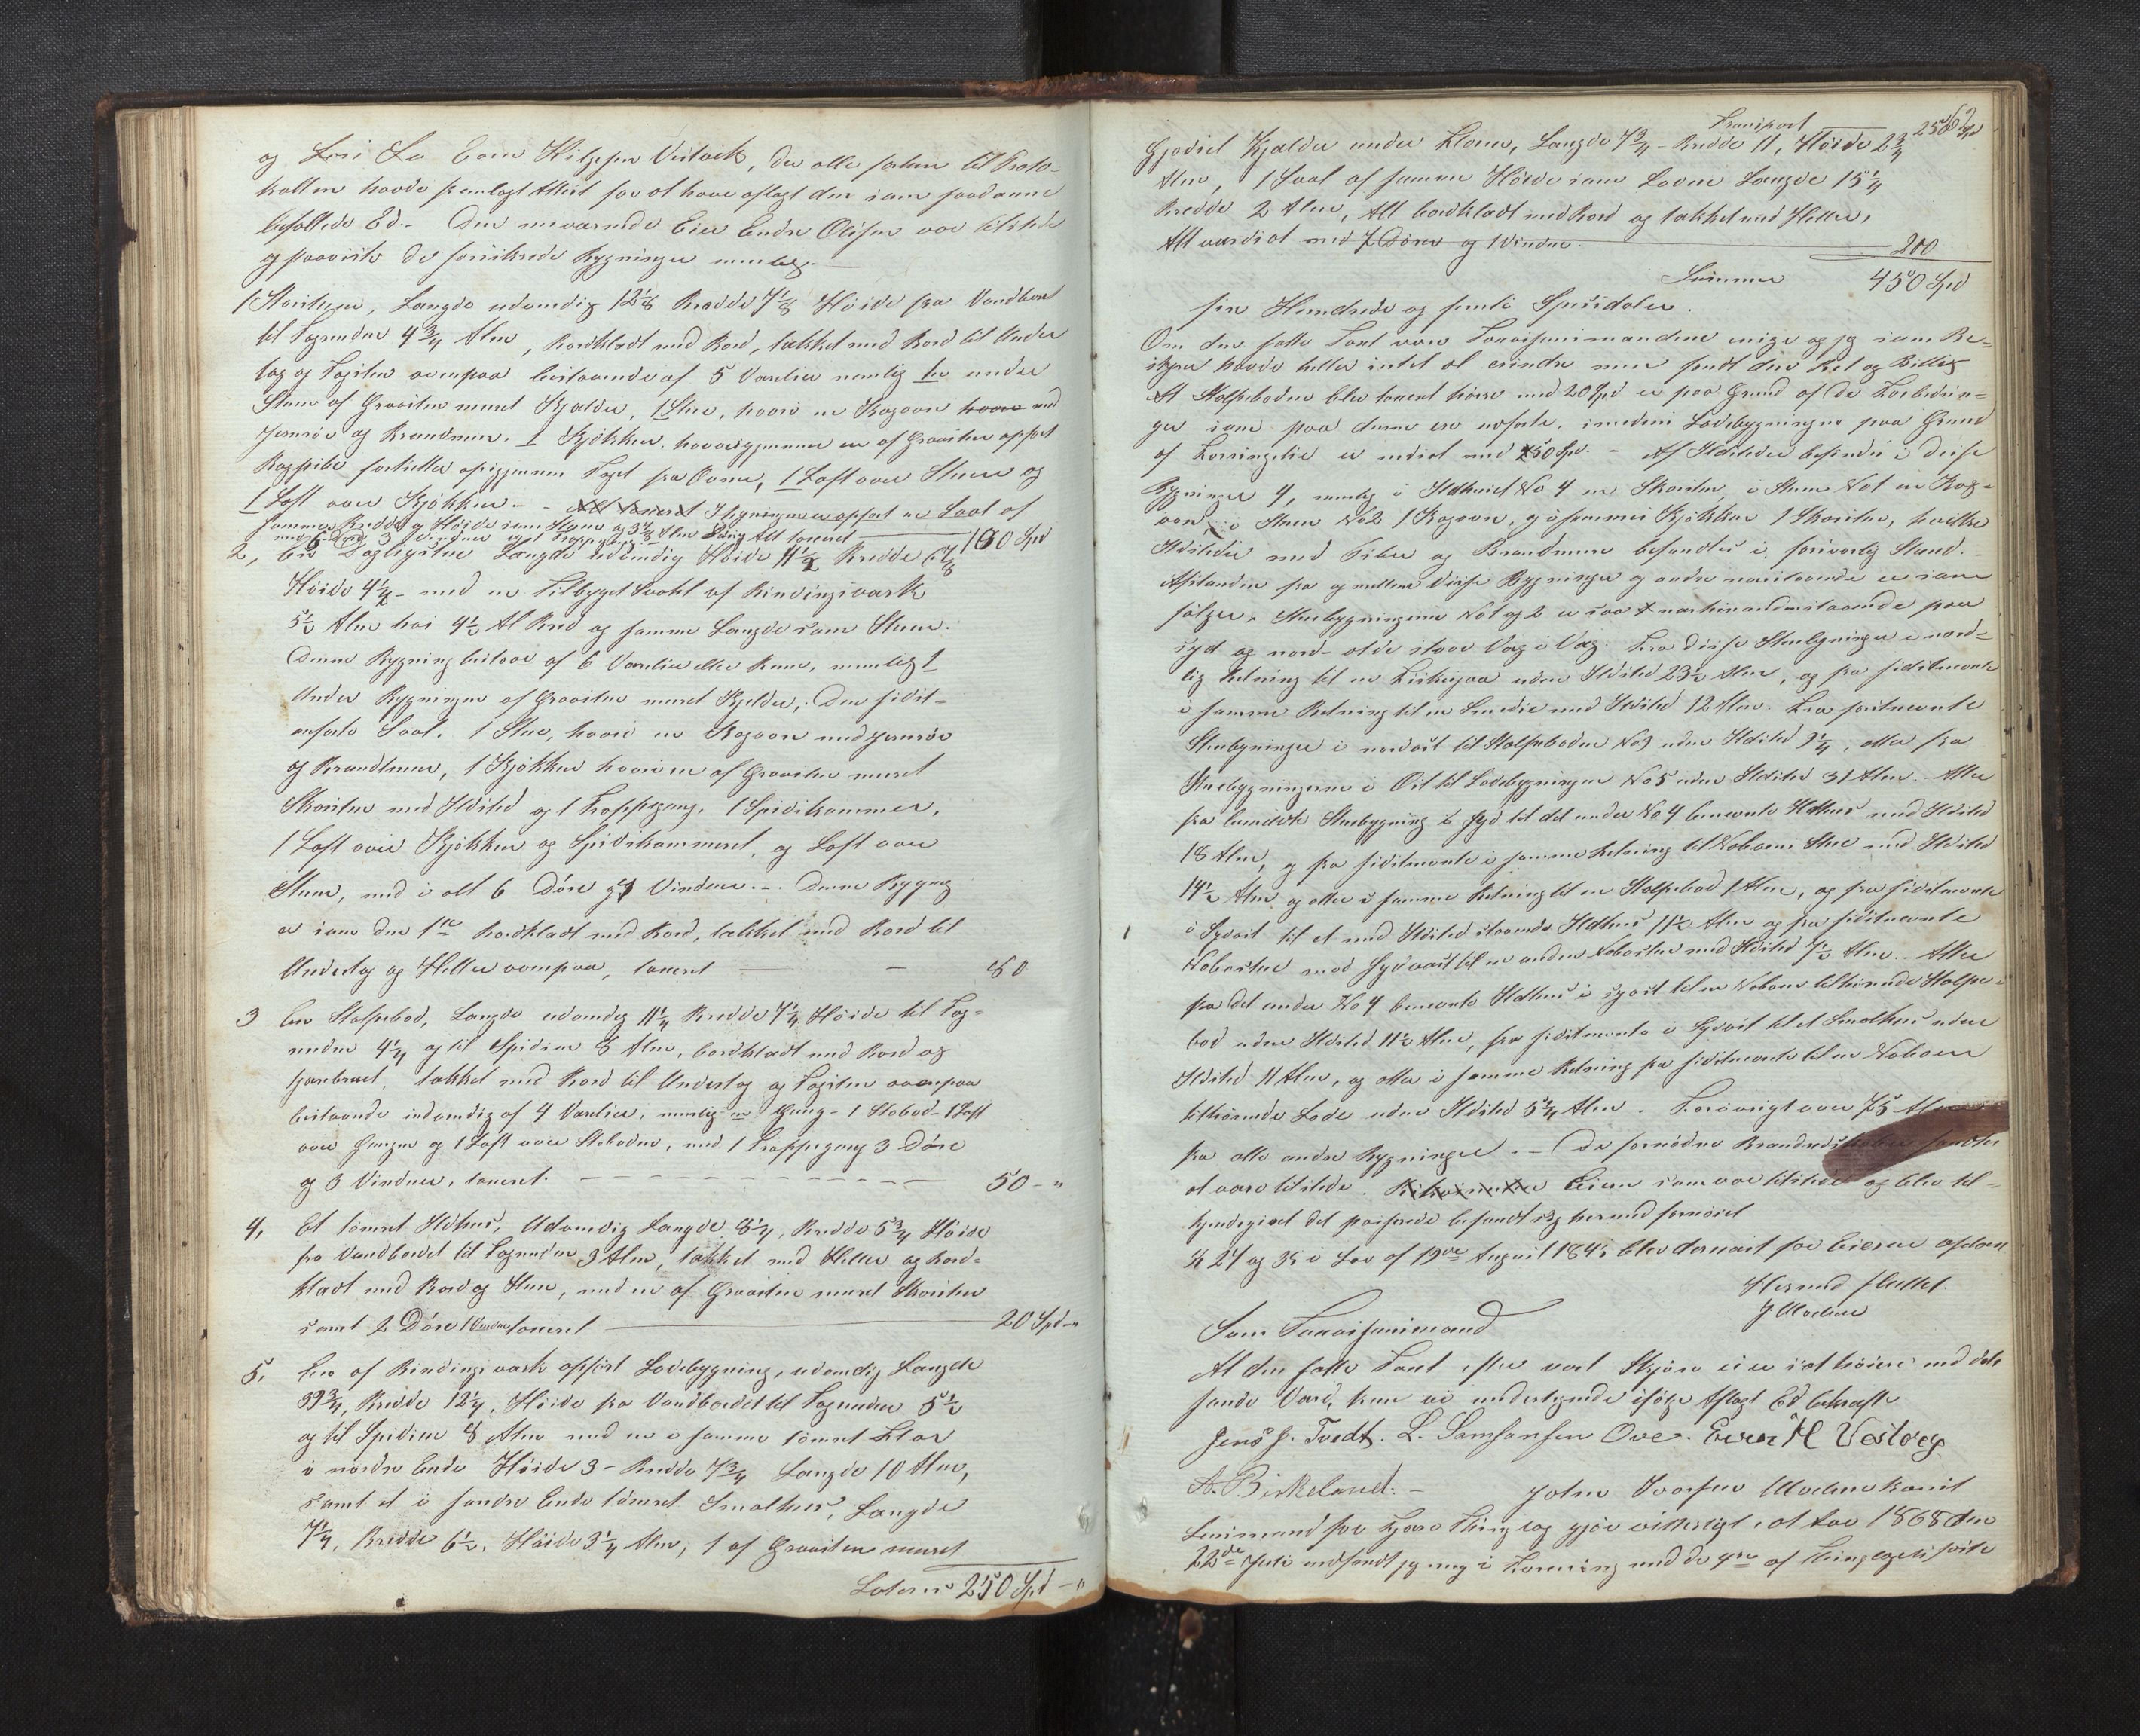 og Lars La Evan Helgesen Vestvik, der alle forhen til Proto-
kollen havde fremlagt Attest for at have aflagt den som saadanne
befallede Ed.- Den nuværende Eier Endre Olsen var tilstede
og paaviste de forsikrede Bygninger nemlig.-
1 Storstue, Længde udvendig 12 1/8 Bredde 7 1/8 Høide fra Vandbord
til Tagrenden 4 3/4 Alen, bordklædt med Bord, tækket med Bord til Under
lag og Tagsten ovenpaa bestaaende af 5 Værelser nemlig En under
Stuen af Graasten muret Kjælder, 1 Stue, hvori en Kogovn med
Jernrør og Brandmuur. 1 Kjøkken, hvorigjennem en af Graasten opført
Røgpibe fortsætter opigjennem Taget fra Ovnen, 1 Loft over Stuen og
1 Loft over Kjøkken. - - I Bygningen er opført en Sval af
samme Bredde og Høide som Stuen og 3 1/2 Alen lang Alt taxeret
med 6 Døre 3 Vinduer og 1 Trappegang 100 Spd
2, En Dagligstue Længde udvendig Høide 11 1/2 Bredde 6 7/8
Høide 4 1/2 - med en Tilbygget Svahl af Bindingsværk
5 1/2 Alen høi 4 1/2 Al Bred og samme Længde som Stuen.
Denne Bygning bestaar af 6 Værelser eller Rum, nemlig 1
Under Bygningen af Graasten muret Kjelder, Den sidst-
anførte Sval. 1 Stue, hvori en Kogovn med Jernrør
og Brandmuur, 1 Kjøkken hvori en af Graasten muret
Skorsten med Ildsted og 1 Trappegang, 1 Spisekammer,
1 Loft over Kjøkken og Spisekammeret, og Loft over
Stuen, med i alt 6 Døre og 4 Vinduer.-. Denne Bygning
er som den 1ste bordklædt med Bord, tækket med Bord til
Underlag og Heller ovenpaa, taxeret - - 80
3 En Stolpebod, Længde udvendig 11 1/4 Bredde 7 1/4 Høide til Tag-
renden 4 1/4 og til Spidsen 8 Alen, bordklædt med Bord og
tjærebræet, tækket med Bord til Underlag og Tagsten ovenpaa
bestaaende indvendig af 4 Værelser, nemlig en Gang - 1 Stabod - 1 Loft
over Gangen og 1 Loft over Staboden, med 1 Trappegang 3 Døre
og 3 Vinduer, taxeret. - - - - - - - - 50 - "
4, Et tømret Ildhus, Udvendig Længde 8 1/4, Bredde 5 3/4 Høide
fra Vandbordet til Tagrenden 3 Alen, tækket med Heller og bord-
klædt med Bord og Stue, med en af Graasten muret Skorsten
samt 2 Døre 1 Vindue taxeret 20 Spd-"
5, En af Bindingsværk opført Ladebygning, udvendig Længde
39 3/4, Bredde 12 1/4, Høide fra Vandbordet til Tagrenden 5 1/2
og til Spidsen 8 Alen med en i samme tømret Flor
i nordre Ende Høide 3 - Bredde 7 3/4 Længde 10 Alen,
samt et i søndre Ende tømret Smalhus, Længde
7 1/4, Bredde 6 1/2, Høide 3 1/4 Alen, 1 af Graasten muret
Lateris 250 Spd -"
62
Transport 250 Spd
Gjødsel Kjælder under Floren, Længde 7 3/4 - Bredde 11, Høide 2 3/4
Alen, 1 Sval af samme Høide som Laden Længde 15 1/4
Bredde 2 Alen, Alt bordklædt med Bord og tækket med Heller,
Alt værdsat med 7 Døre og 1 Vindue. 200
Summa 450 Spd
fire Hundrede og femti Speciedaler.
Om den satte Taxt vare Taxationsmændene enige og jeg som Be-
styrer havde heller intet at erindre men fandt den Ret og Billig
At Stolpeboden blev taxeret høiere med 20 Spd er paa Grund af De Forbedrin-
ger som paa denne ere udførte, imedens Ladebygningen paa Grund
af Forringelse er nedsat med 50 Spd. - Af Ildsteder befindes i disse
Bygninger 4, nemlig i Ildhuset No 4 en Skorsten, i Stuen No 1 en Kog-
ovn, i Stuen No 2 1 Kogovn, og i sammes Kjøkken 1 Skorsten, hvilke
Ildsteder med Piber og Brandmure befandtes i forsvarlig Stand.-
Afstanden fra og mellem disse Bygninger og andre nærstaaende er som
følger. Stuebygningerne No 1 og 2 er saa nær hinanden staaende paa
syd og nord-side staar Væg i Væg. Fra disse Stuebygninger i nord-
lig Retning til en Tørkestue uden Ildsted 23 1/2 Alen, og fra sidstnævnte
i samme Retning til en Smedie med Ildsted 12 Alen. Fra førstnævnte
Stuebygninger i nordøst til Stolpeboden No 3 uden Ildsted 9 1/4, atter fra
Stuebygningerne i Øst til Ladebygningen No 5 uden Ildsted 31 Alen. Atter
fra bemeldte Stuebygning i Syd til det under No 4 benævnte Ildhus med Ildsted
18 Alen, og fra sidstnævnte i samme Retning til Naboens Stue med Ildsted
14 1/2 Alen og atter i samme Retning til en Stolpebod 1 Alen, og fra sidstnævnte
i Sydøst til et med Ildsted staaende Ildhus 11 1/2 Alen og fra sidstnævnte
Nabostue mod Sydvest til en anden Nabostue med Ildsted 7 1/2 Alen. - Atter
fra det under No 4 benævnte Ildhus i Syøst til en Naboen tilhørende Stolpe-
bod uden Ildsted 11 1/2 Alen, fra sidstnævnte i Sydøst til et Smalhus uden
Ildsted 11 Alen, og atter i samme Retning fra sidstnævnte til en Naboen
tilhørende Lade uden Ildsted 5 3/4 Alen. Forøvrigt over 75 Alen
fra alle andre Bygninger. - De fornødne Brandredskaber fandtes
at være tilstede. Eieren som var tilstede og blev til-
kjendegivet det passerede befandt sig hermed fornøiet
§§ 24 og 35 i Lov af 19de August 1845 blev dernæst for Eieren oplæst
Hermed sluttet.
J Mæland
Som Taxationsmænd
At den satte Taxt efter vort Skjøn ei er sat høiere end dets
sande Værd, kan vi undertegnede ifølge Aflagt Ed bekræfte
Jens J. Tvedt. L. Samsonsen Ove. Evan H Vestvig
A. Birkeland. -
John Iversen Mæland konst
Lensmand for Thinglag gjør vitterligt, at Aar 1868 den
22de Juli indfandt jeg mig i Forening med de 4re af Thinglagets faste